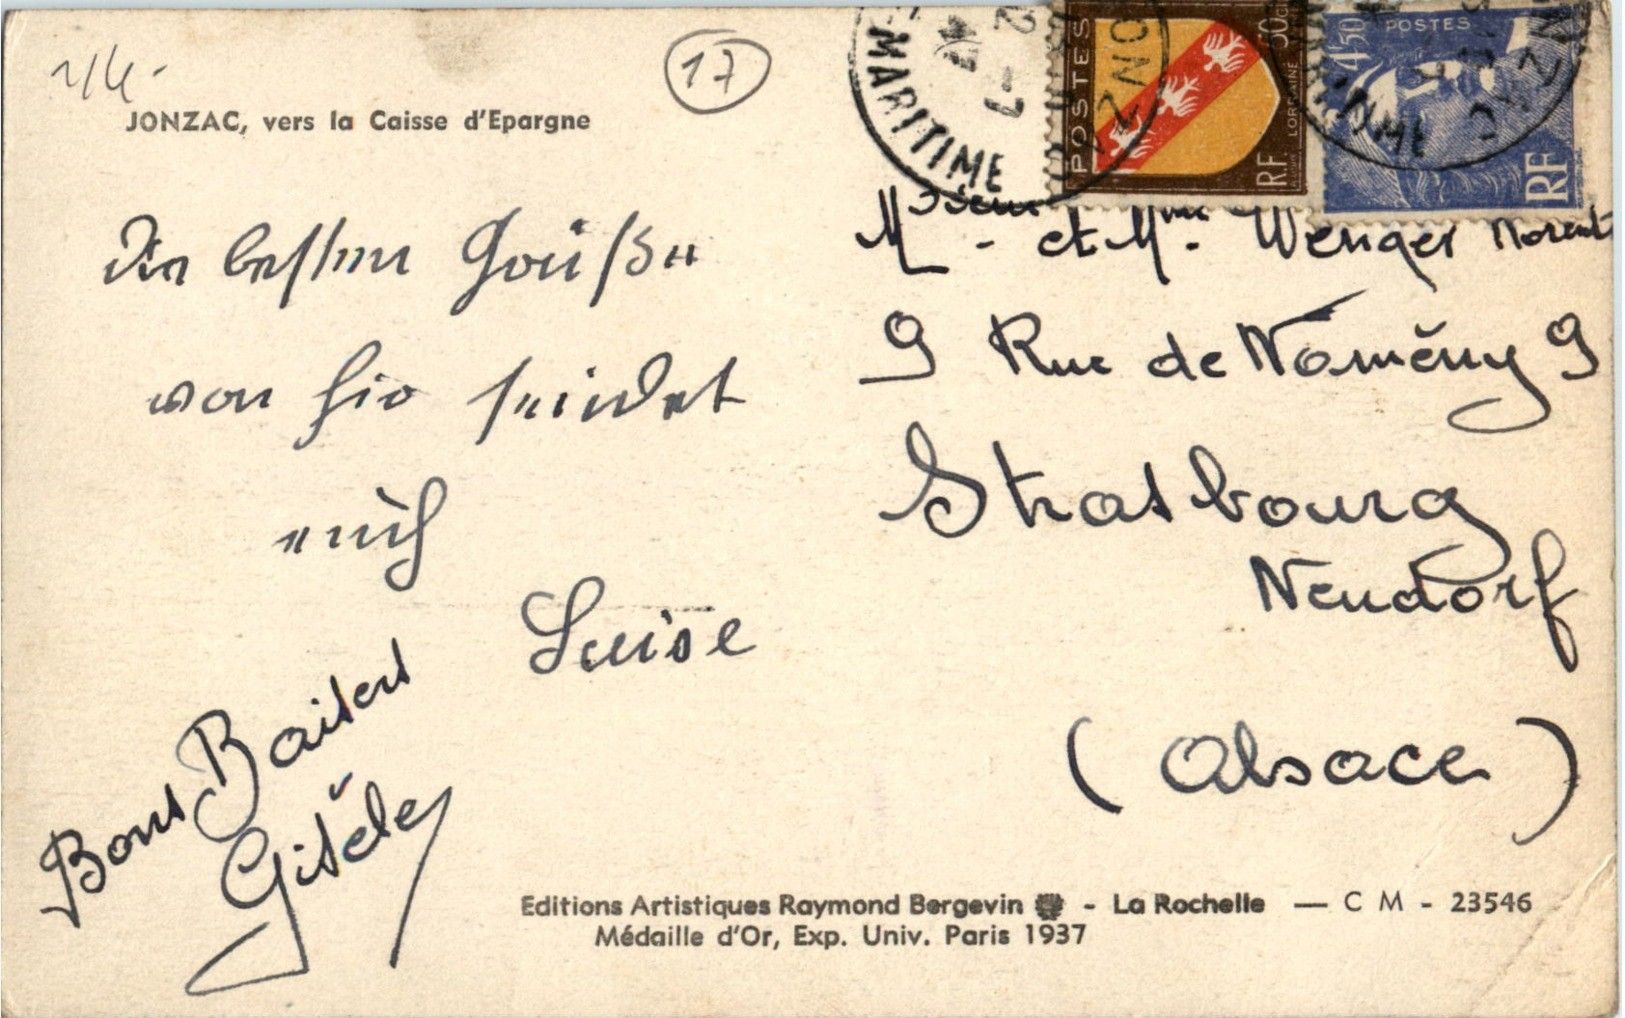 2/4.-
17
JONZAC, vers la Caisse d'Epargne
Die besten Grüße
von hir sendet
euch
Luise
Bons Baisers
Gisèle
-MARITIME
JONZAC
2-7
47
POSTES
50c
LORRAINE
RF
4f50
POSTES
RF
MARITIME
JONZAC
Msieur - et Mme - Wenger
9 Rue de Nomény 9
Strasbourg
Neudorf
(Alsace)
Editions Artistiques Raymond Bergevin - La Rochelle — C M - 23546
Médaille d'Or, Exp. Univ. Paris 1937